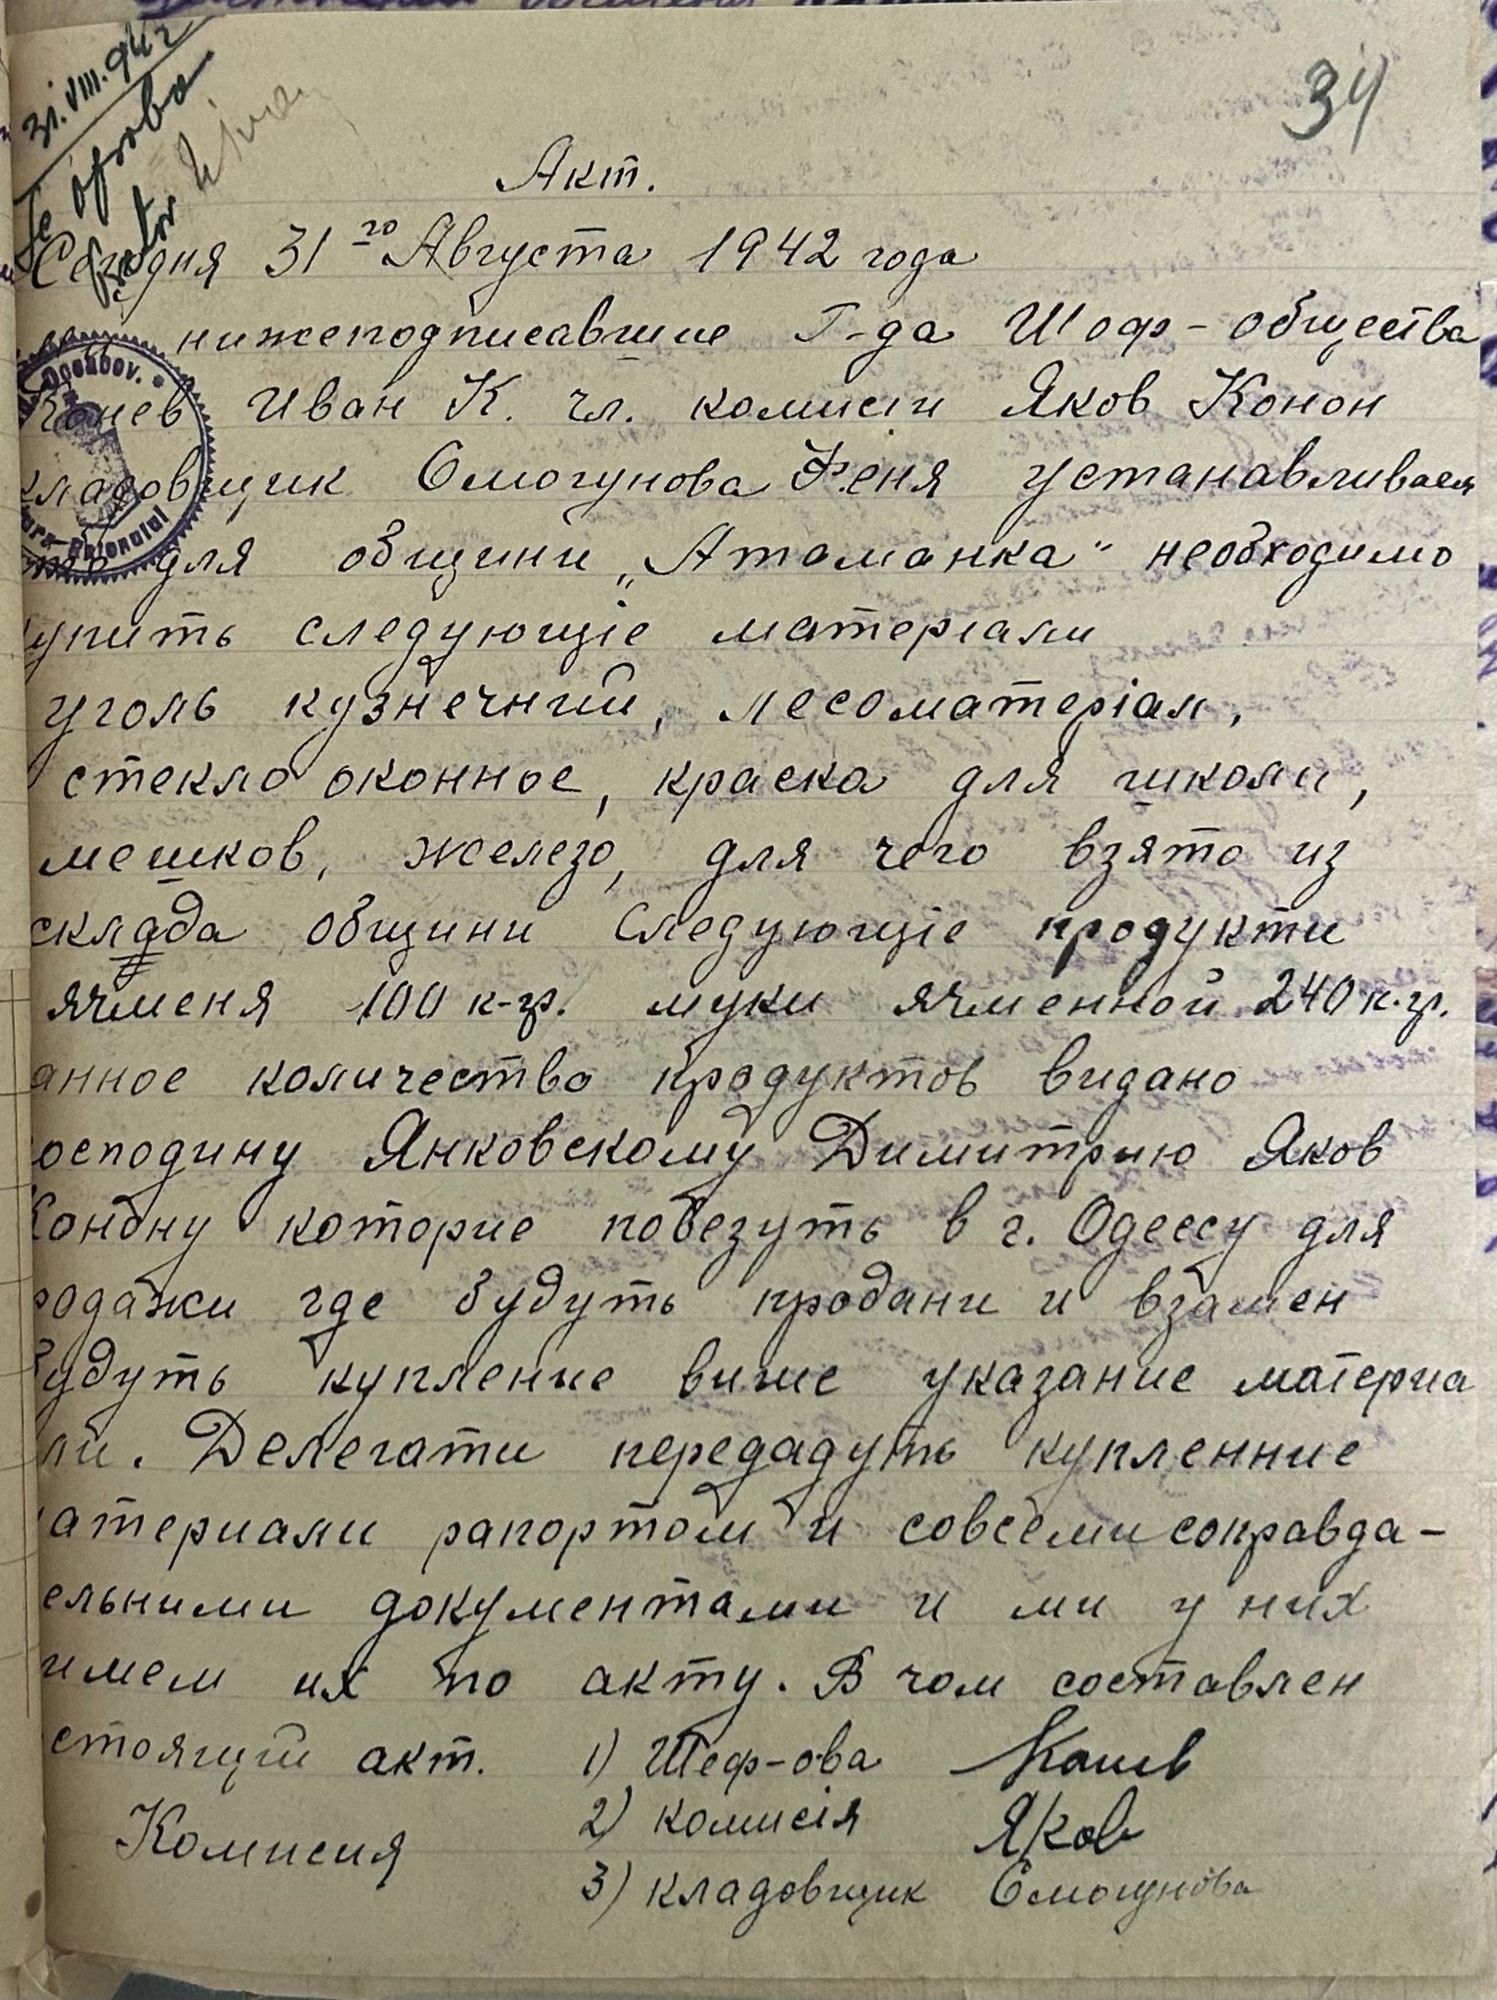 31.VIII.942
Se aproba
34
Акт.
Сегодня 31го Августа 1942 года
нижеподписавшие Г-да Шоф-общества
Конев Иван К. чл. комисіи Яков Конон
кладовщик Смогунова Феня устанавливаем
что для общини „Атаманка" необходимо
упить следующіе материяли
уголь кузнечний, лесоматеріал,
стекло оконное, краска для школи,
мешков, железо, для чего взято из
склада общини следующіе продукти
ячменя 100 к-гр. муки ячменной 240 к.гр.
анное количество продуктов видано
осподину Янковскому Димитрию Яков
Конону которие повезуть в г. Одессу для
родажи где будуть продани и взамен
будуть купление више указание материа
ли. Делегати передадуть купленние
атериали рапортом и совсеми соправда-
ельними документами и ми у них
имем их по акту. В чом составлен
стоящий акт. 1) Шеф-ова Конев
Комисия
2) комисія Яков
3) кладовщик Смогунова